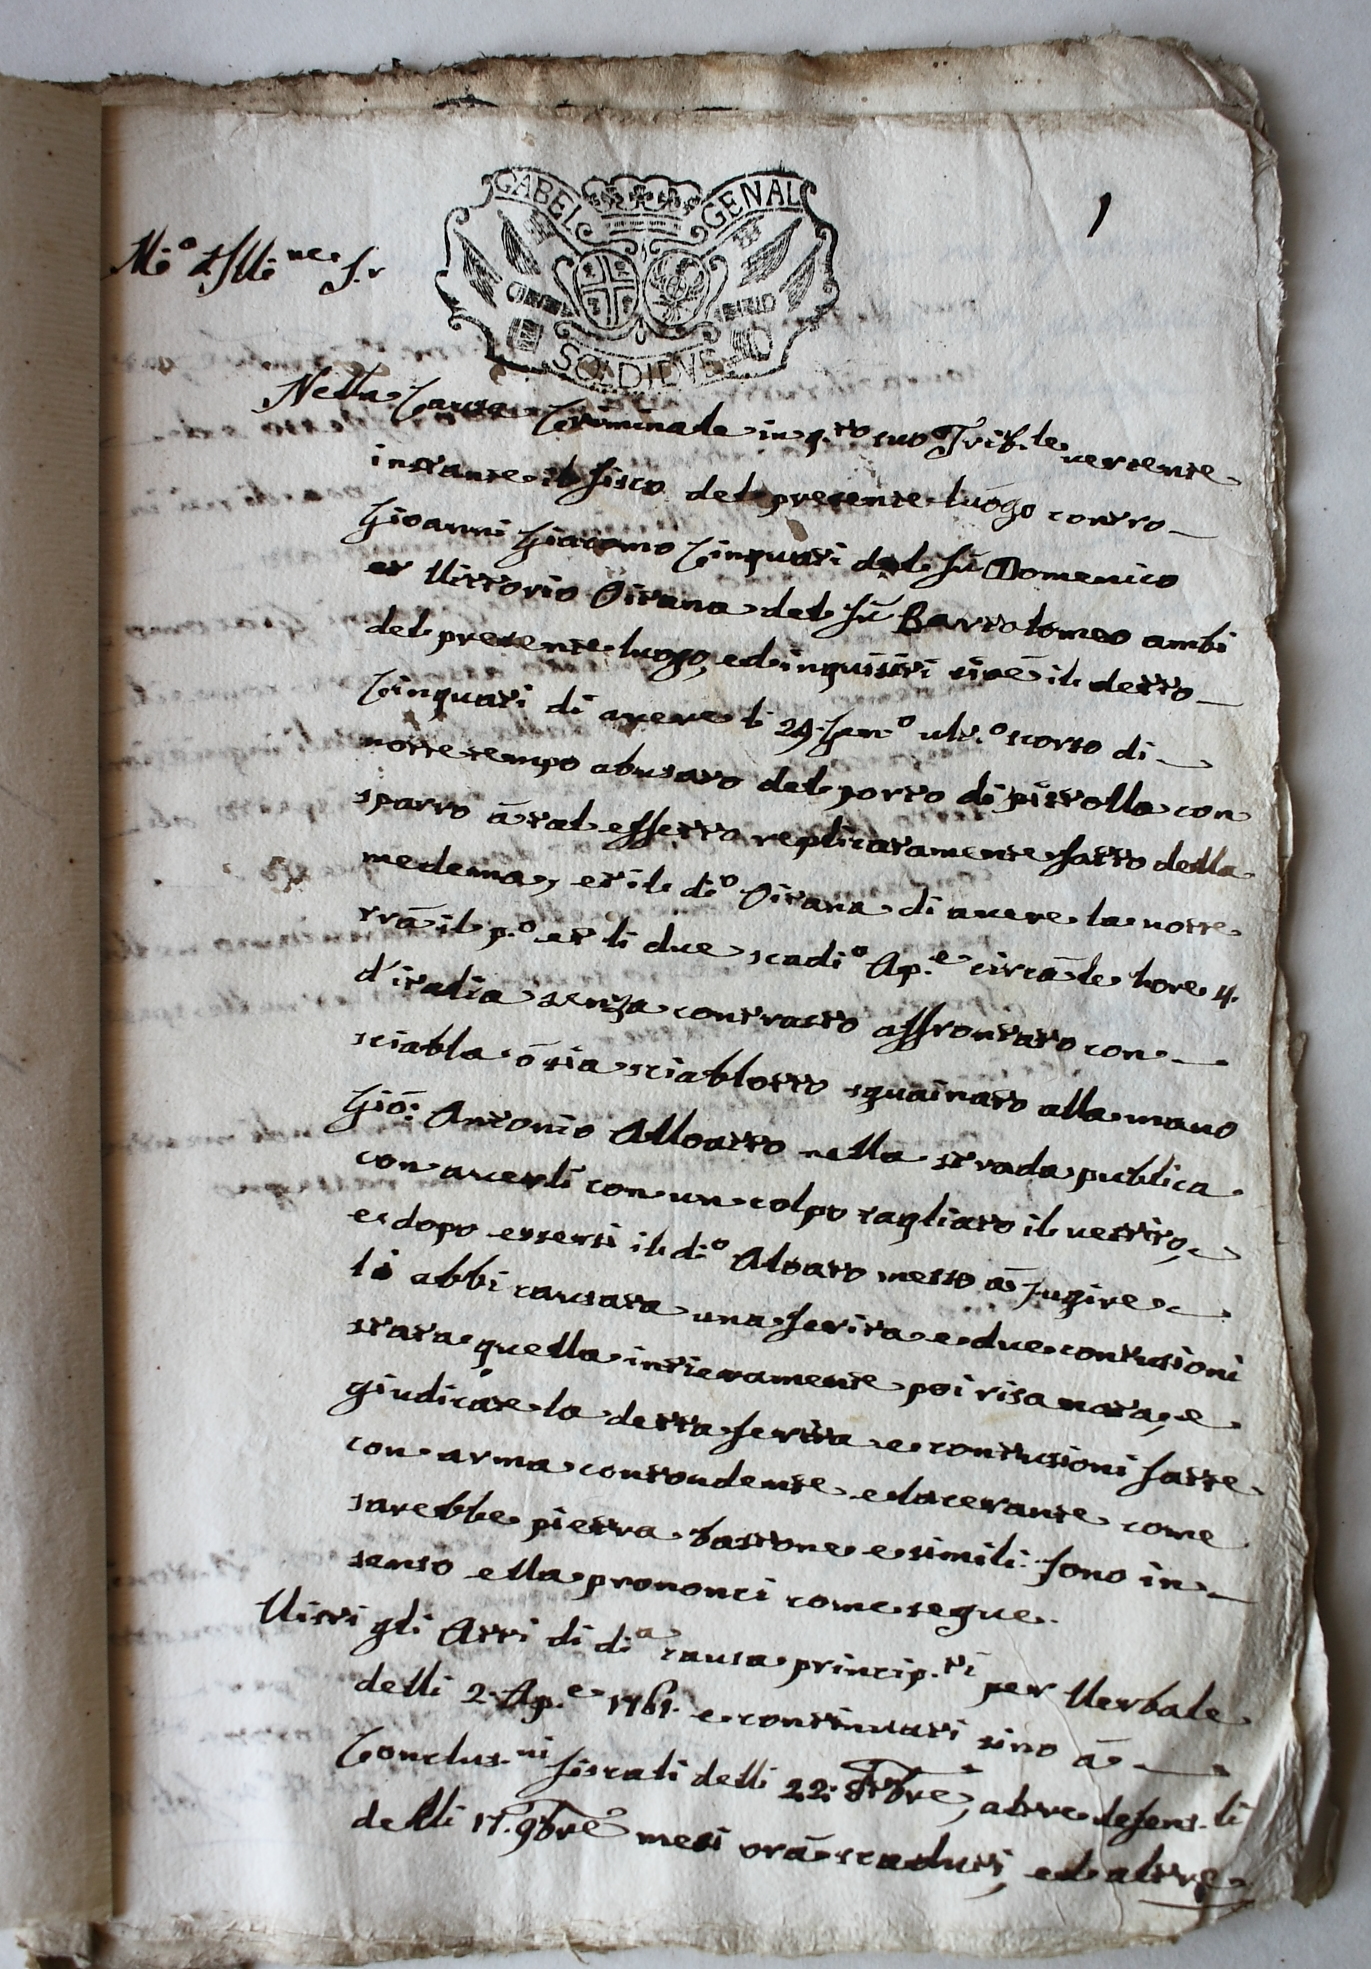 GABEL GENAL
1
SOLDI UNE
Nella Causa Criminale in q.to suo Trib.le vertente
instante il fisco del presente luogo contro
Gioanni Giacomo Cinquati del fù Domenico
et Vittorio Oitana del fù Bartolomeo ambi
del presente luogo, ed inquisiti cioè il detto
Cinquati di avere li 29. Gen.o ult.o scorso di
notte tempo abusato del porto di pistolla con
sparro à tal effetto replicatamente fatto della
medema, et il d.o Oitana di avere la notte
trà il p.o et li due scad.o Ap.e circà le hore 4.
d'italia senza contrasto affrontato con
sciabla ò sia sciablotto sguainato alla mano
Gio: Antonio Alloatto nella strada publica
con averli con un colpo tagliato il vestito,
e dopo essersi il d.o Aloato messo à fugire
li abbi causata una ferita e due contusioni
stata quella intieramente poi risanata, e
giudicate la detta ferita e contusioni fatte
con arma contondente e lacerante come
sarebbe pietra bastone e simili. Sono in
senso ella prononci come segue.
Visti gli Atti di d.a causa princip.ti per Verbale
delli 2. Ap.e 1761. e continuati sino à
Conclus.ni fiscali delli 22. 8bre, altre defens.li
delli 17. 9bre mesi orà scaduti, ed altre